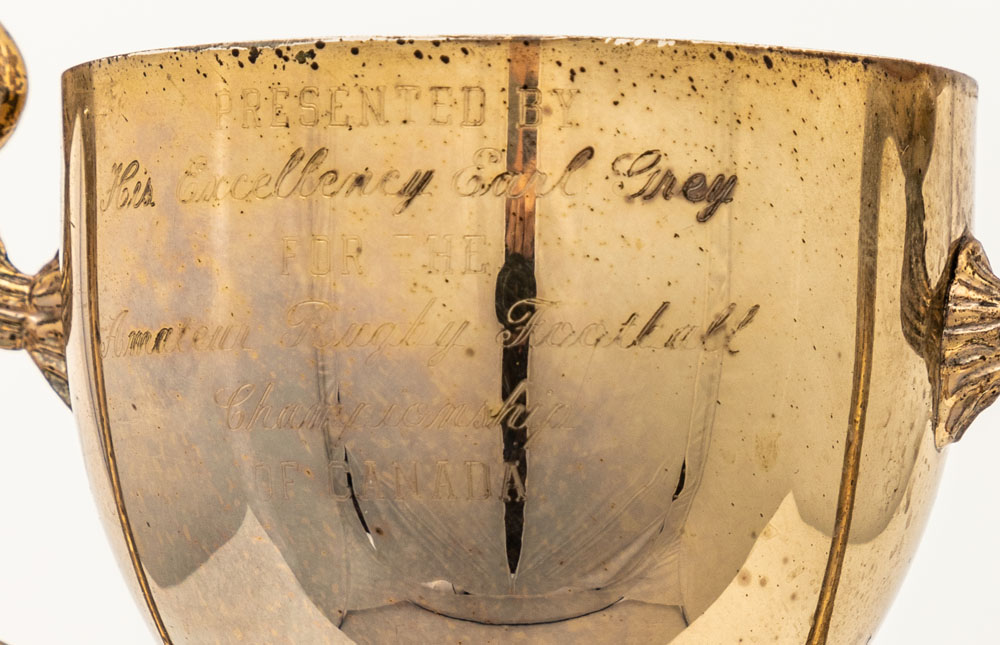 PRESENTED BY
His Excellency Earl Grey
FOR THE
Amateur Rugby Football
Championship
OF CANADA